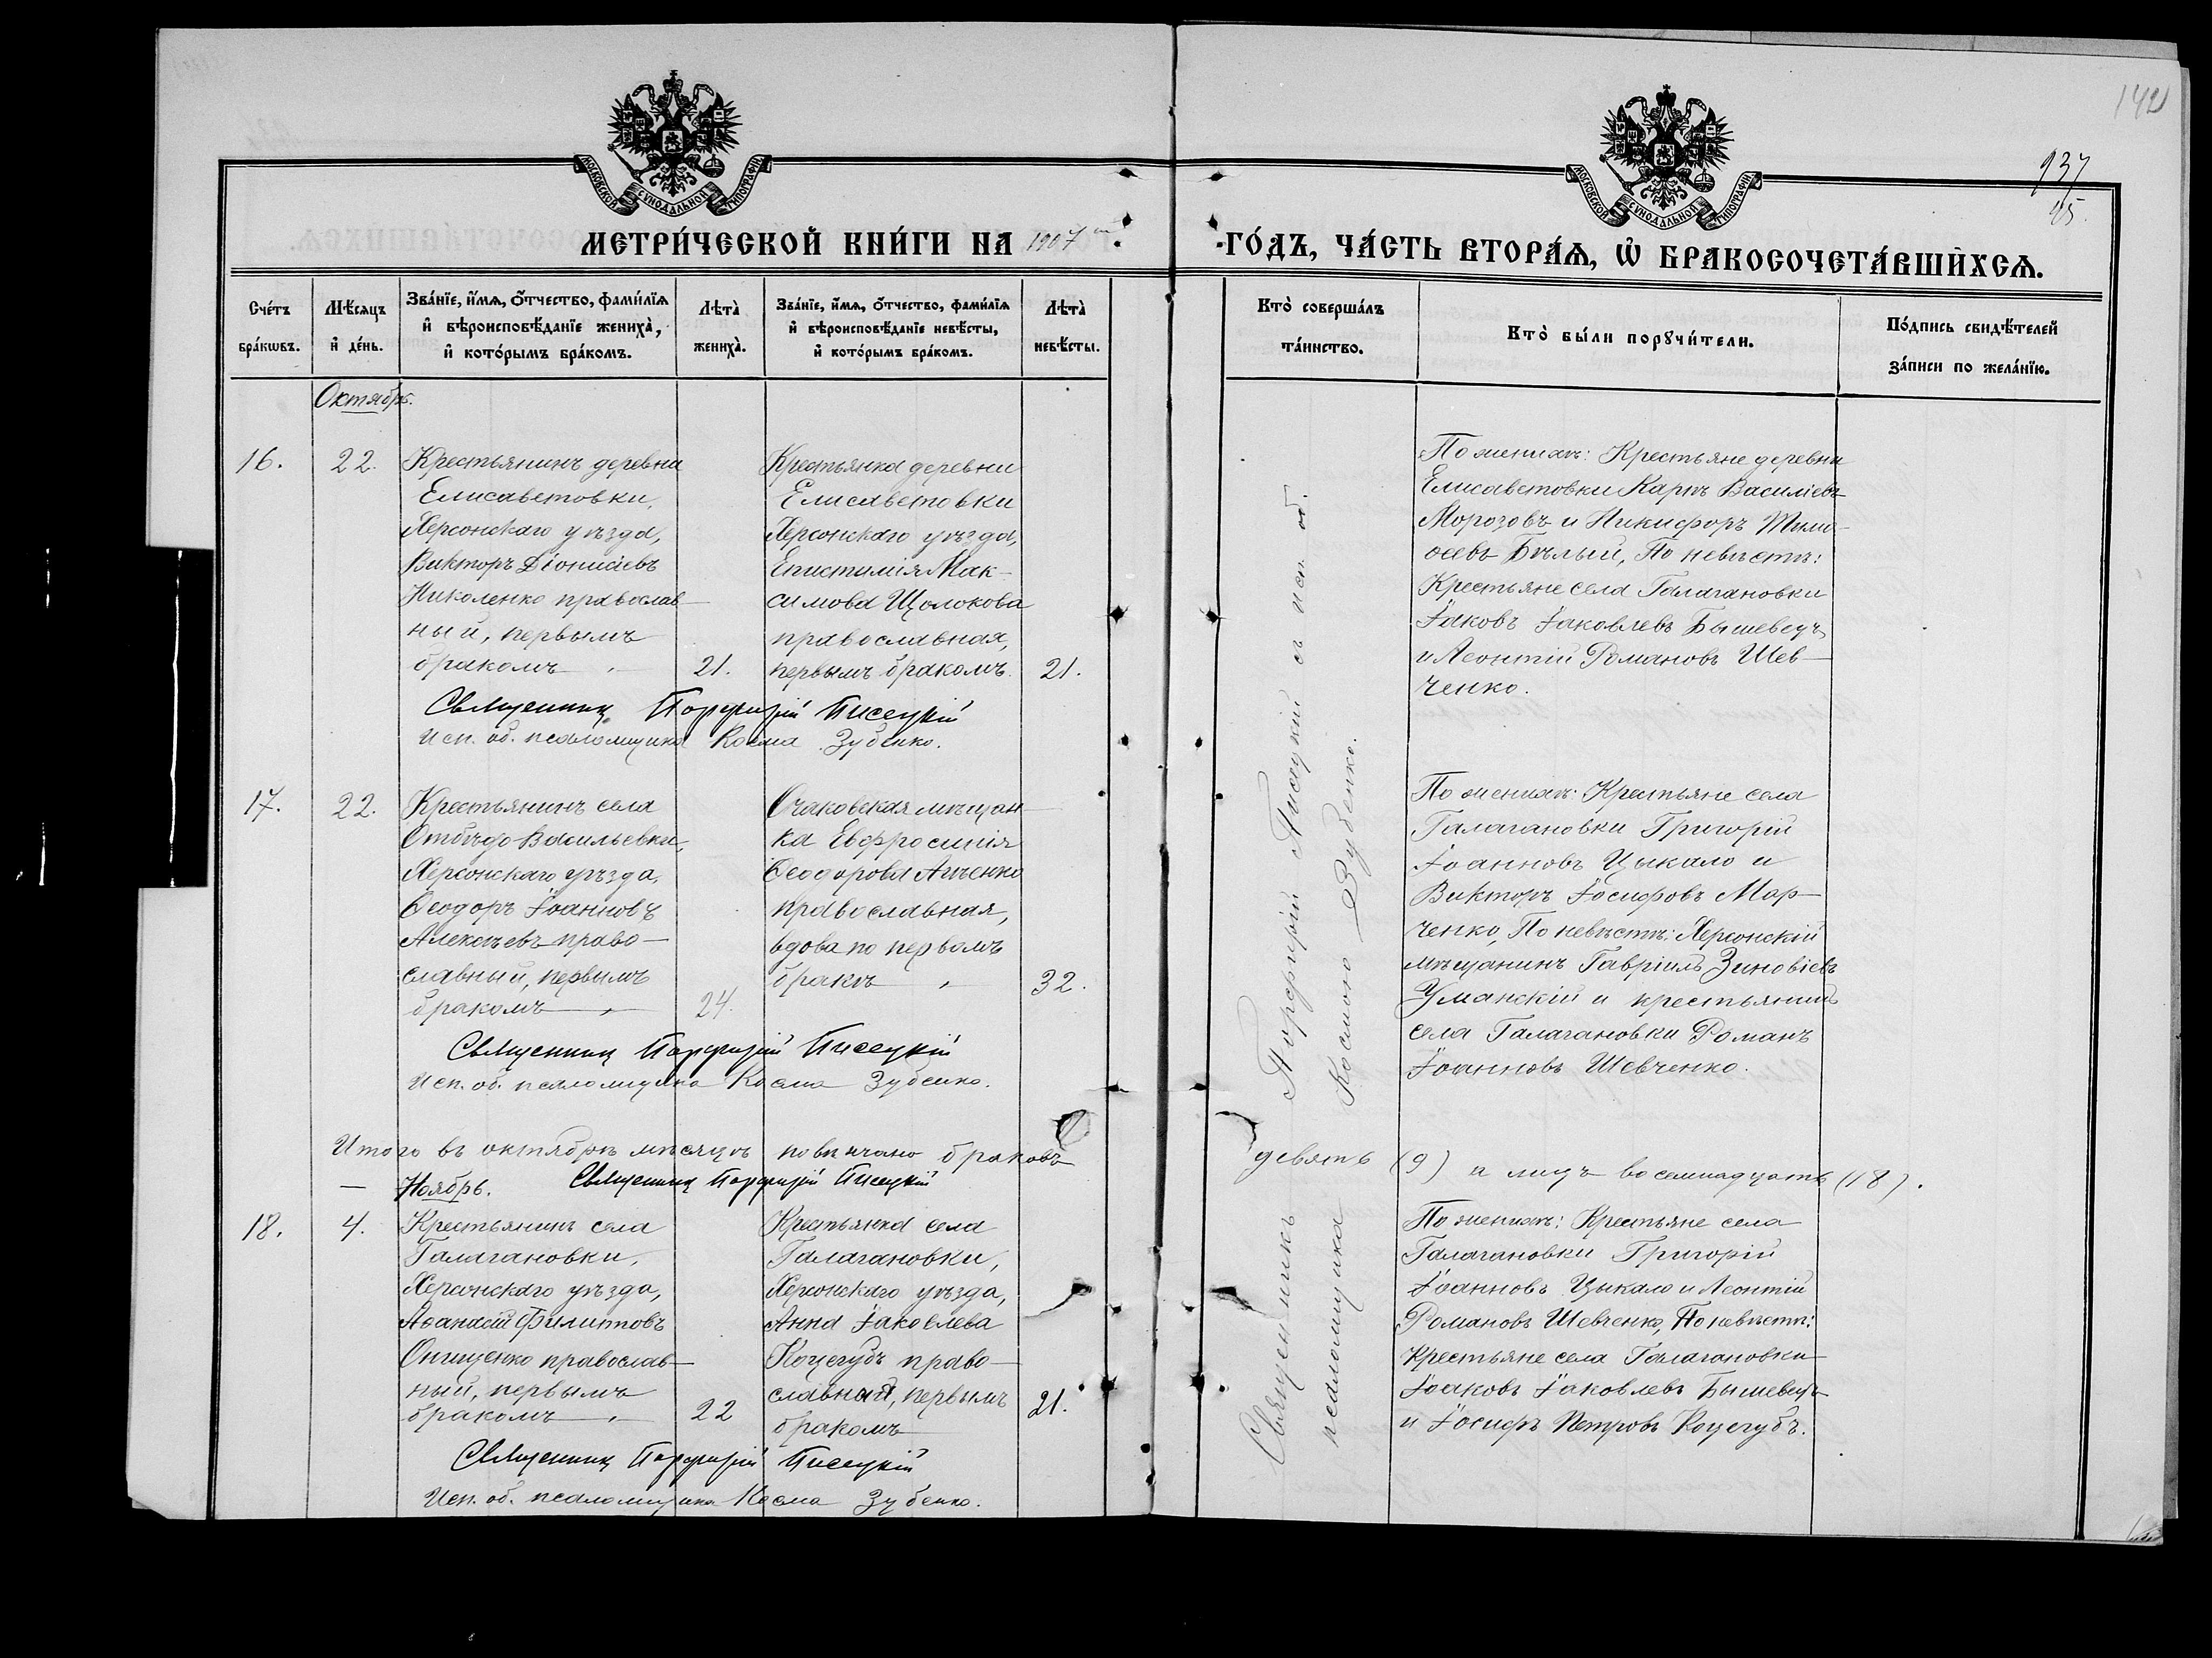 142
937
45.
МОСКОВСКОЙ СѴНОДАЛЬНОЙ ТИПОГРАФІИ
МОСКОВСКОЙ СѴНОДАЛЬНОЙ ТИПОГРАФІИ
МЕТРИ́ЧЕСКОЙ КНИ́ГИ НА 1907
ГО́ДЪ, ЧА́СТЬ ВТОРА́Ѧ, Ѡ҆ БРАКОСОЧЕТА́ВШИХСѦ.
Сче́тъ
бра́кѡвъ.
Мѣ́сяцъ
и҆ де́нь.
Зва́нїе, и҆́мѧ, о҆́тчество, фами́лїѧ
и҆ вѣроисповѣ́данїе жениха̀,
и҆ кото́рымъ бра́комъ.
Лѣ́та̀
жениха̀.
Зва́нїе, и҆́мѧ, о҆́тчество, фами́лїѧ
и҆ вѣроисповѣ́данїе невѣ́сты,
и҆ кото́рымъ бра́комъ.
Лѣ́та̀
невѣ́сты.
Кто̀ соверша́лъ
та́инство.
Кто̀ бы́ли порꙋчи́тели.
По́дпись свидѣ́телей
за́писи по жела́нїю.
Октябрь.
16.
22.
Крестьянинъ деревни
Елисаветовки,
Херсонскаго уѣзда,
Викторъ Діонисіевъ
Николенко православ-
ный, первымъ
бракомъ
21.
Крестьянка деревни
Елисаветовки
Херсонскаго уѣзда,
Епистимія Мак-
симова Щолокова
православная,
первымъ бракомъ.
21.
По женихѣ: Крестьяне деревни
Елисаветовки Карпъ Василіевъ
Морозовъ и Никифоръ Тимо-
ѳеевъ Бѣлый, По невѣстѣ:
Крестьяне села Галагановки
Іаковъ Іаковлевъ Бышевецъ
и Леонтій Романовъ Шев-
ченко.
Священникъ Порфирій Писецкій
Исп. об. псаломщика Косма Зубенко.
17.
22.
Крестьянинъ села
Отбѣдо-Васильевки,
Херсонскаго уѣзда,
Ѳеодоръ Іоанновъ
Алексѣевъ право-
славный, первымъ
бракомъ
24.
Очаковская мѣщан-
ка Евфросинія
Ѳеодорова
православная,
вдова по первомъ
бракѣ
32.
По женихѣ: Крестьяне села
Галагановки Григорій
Іоанновъ Цыкало и
Викторъ Іосифовъ Мар-
ченко, По невѣстѣ: Херсонскій
мѣщанинъ Гавріилъ Зиновіевъ
Уманскій и крестьянинъ
села Галагановки Романъ
Іоанновъ Шевченко.
Священникъ Порфирій Писецкій
Исп. об. псаломщика Косма Зубенко.
Итого въ октябрѣ мѣсяцѣ повѣнчано браковъ девять (9) а лицъ восемнадцать (18).
Ноябрь. Священникъ Порфирій Писецкій
18.
4.
Крестьянинъ села
Галагановки,
Херсонскаго уѣзда,
Аѳанасій Филипповъ
Онищенко православ-
ный, первымъ
бракомъ
22
Крестьянка села
Галагановки,
Херсонскаго уѣзда,
Анна Іаковлева
Коцегубъ право-
славная, первымъ
бракомъ
21.
По женихѣ: Крестьяне села
Галагановки Григорій
Іоанновъ Цыкало и Леонтій
Романовъ Шевченко, По невѣстѣ:
Крестьяне села Галагановки
Іаковъ Іаковлевъ Бышевецъ
и Іосифъ Петровъ Коцегубъ.
Священникъ Порфирій Писецкій
Исп. об. псаломщика Косма Зубенко.
Священникъ Порфирій Писецкій съ исп. об.
псаломщика Космою Зубенко.